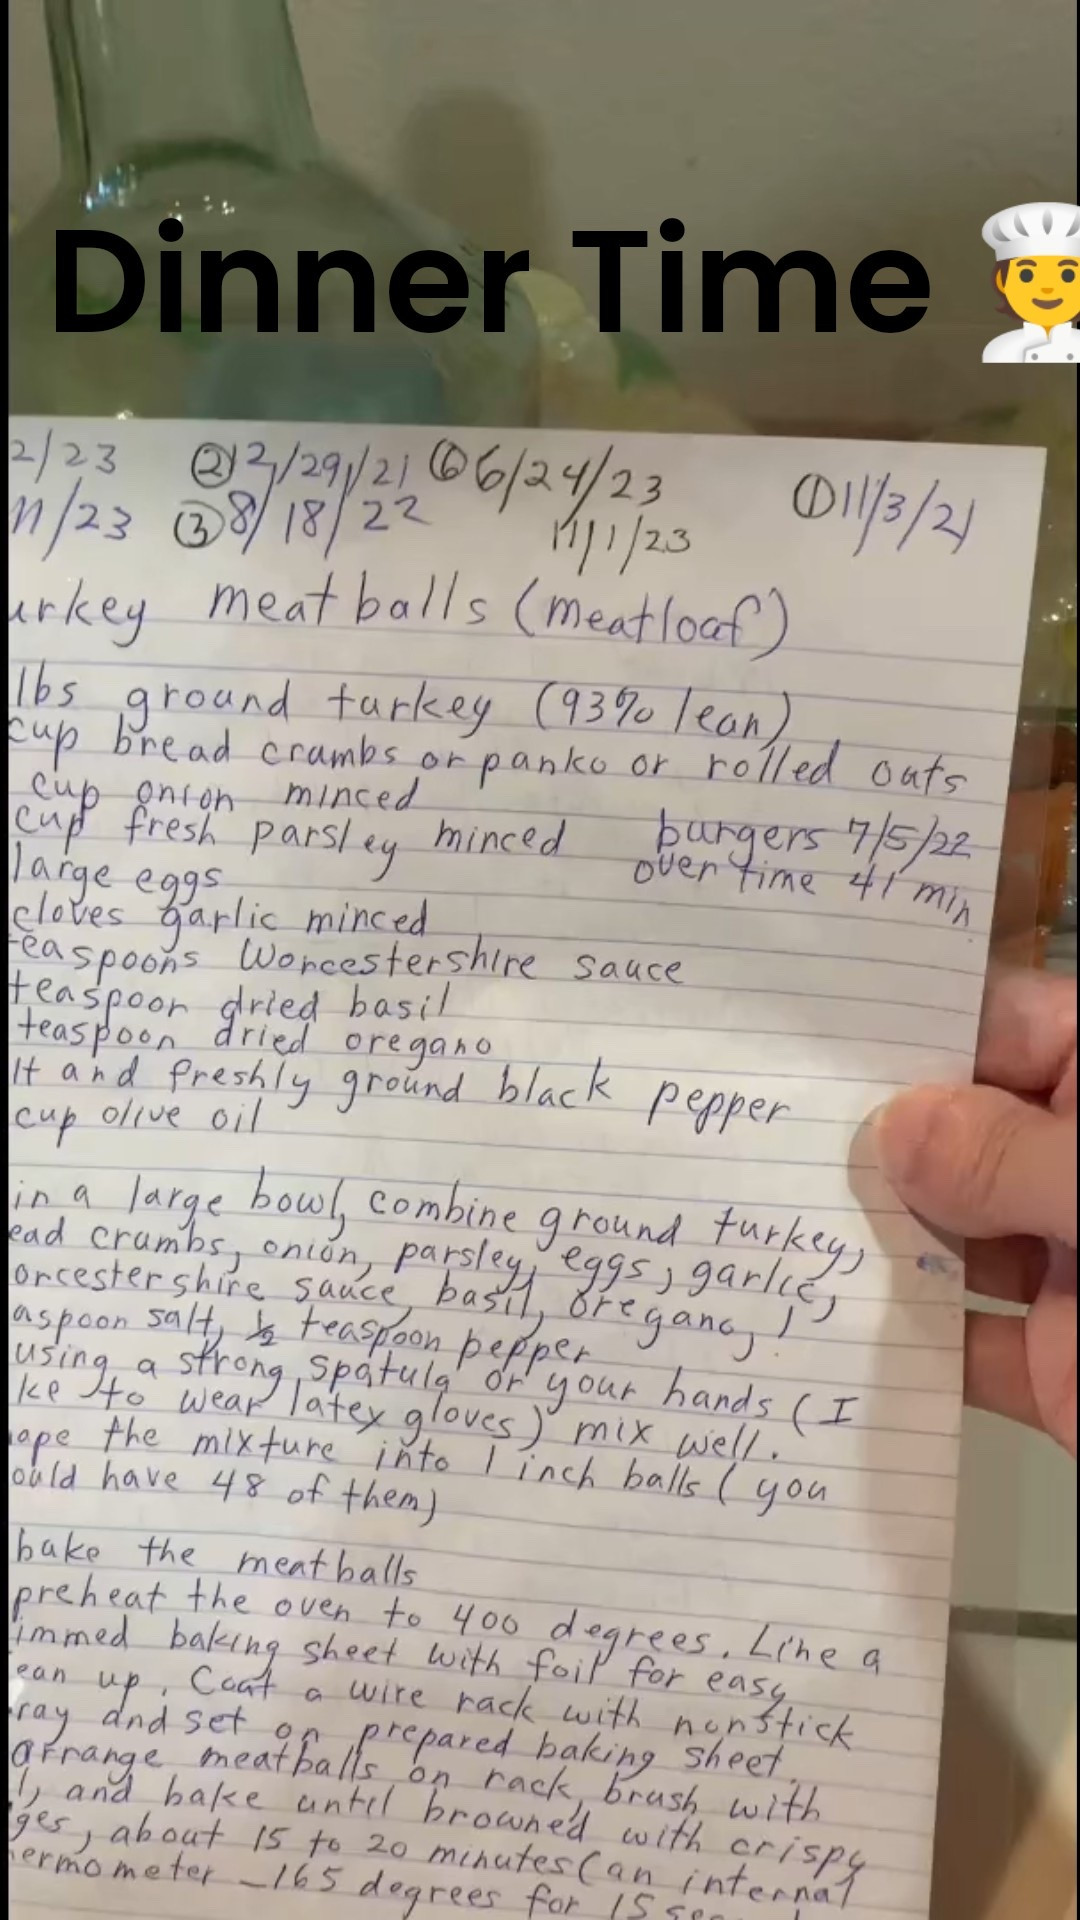 Dinner Time
2/23 ② 12/29/21 ⑥ 6/24/23 ① 11/3/21
11/23 ③ 8/18/22 11/1/23
urkey meatballs (meatloaf)
lbs ground turkey (93% lean)
cup bread crumbs or panko or rolled oats
cup onion minced
cup fresh parsley minced burgers 7/5/22
large eggs over time 41 min
cloves garlic minced
easpoons Worcestershire sauce
teaspoon dried basil
teaspoon dried oregano
lt and freshly ground black pepper
cup olive oil
in a large bowl, combine ground turkey,
ead crumbs, onion, parsley, eggs, garlic,
orcestershire sauce, basil, oregano, 1
aspoon salt, ½ teaspoon pepper
using a strong spatula or your hands (I
ke to wear latex gloves) mix well.
ape the mixture into 1 inch balls (you
ould have 48 of them)
bake the meatballs
preheat the oven to 400 degrees. Line a
immed baking sheet with foil for easy
ean up. Coat a wire rack with nonstick
ray and set on prepared baking sheet.
arrange meatballs on rack, brush with
l, and bake until browned with crispy
ges, about 15 to 20 minutes (an internal
ermometer – 165 degrees for 15